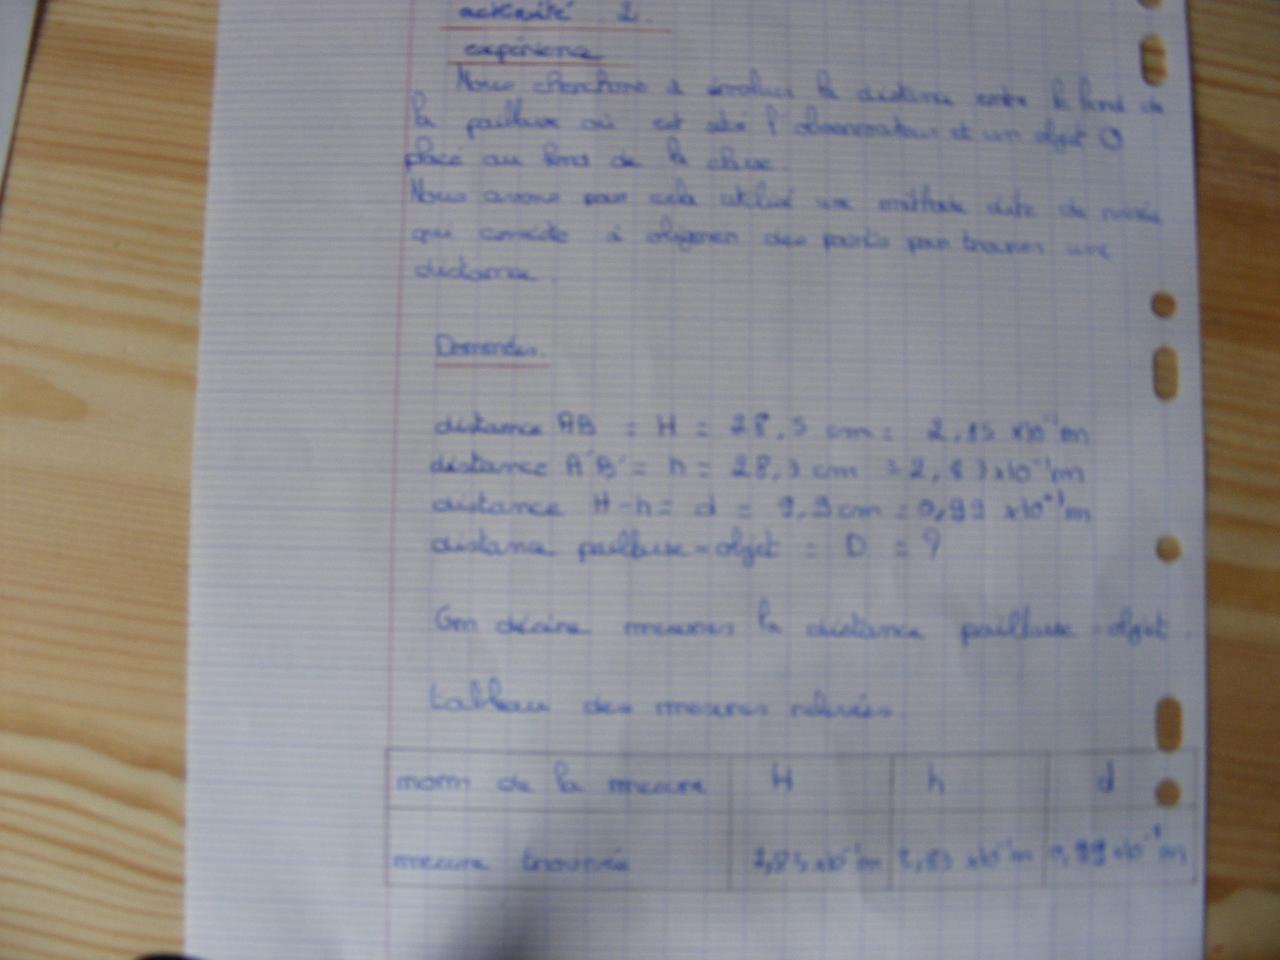 activité 2.
expérience
Nous cherchons à évaluer la distance entre le bord de
la paillasse où est situé l'observateur et un objet O
placé au fond de la classe.
Nous avons pour cela utilisé une méthode dite de visée
qui consiste à des par travers une
distance.
Données.
distance AB = H = 28,5 cm = 2,85 x10⁻¹m
distance A'B' = h = 28,3 cm = 2,83 x10⁻¹m
distance H-h = d = 9,9 cm = 0,99 x10⁻¹m
distance paillasse-objet = D = ?
On désire mesurer la distance paillasse-objet.
tableau des mesures relevées.
nom de la mesure H h d
mesure trouvée 2,85 x10⁻¹m 2,83 x10⁻¹m 0,99 x10⁻¹m